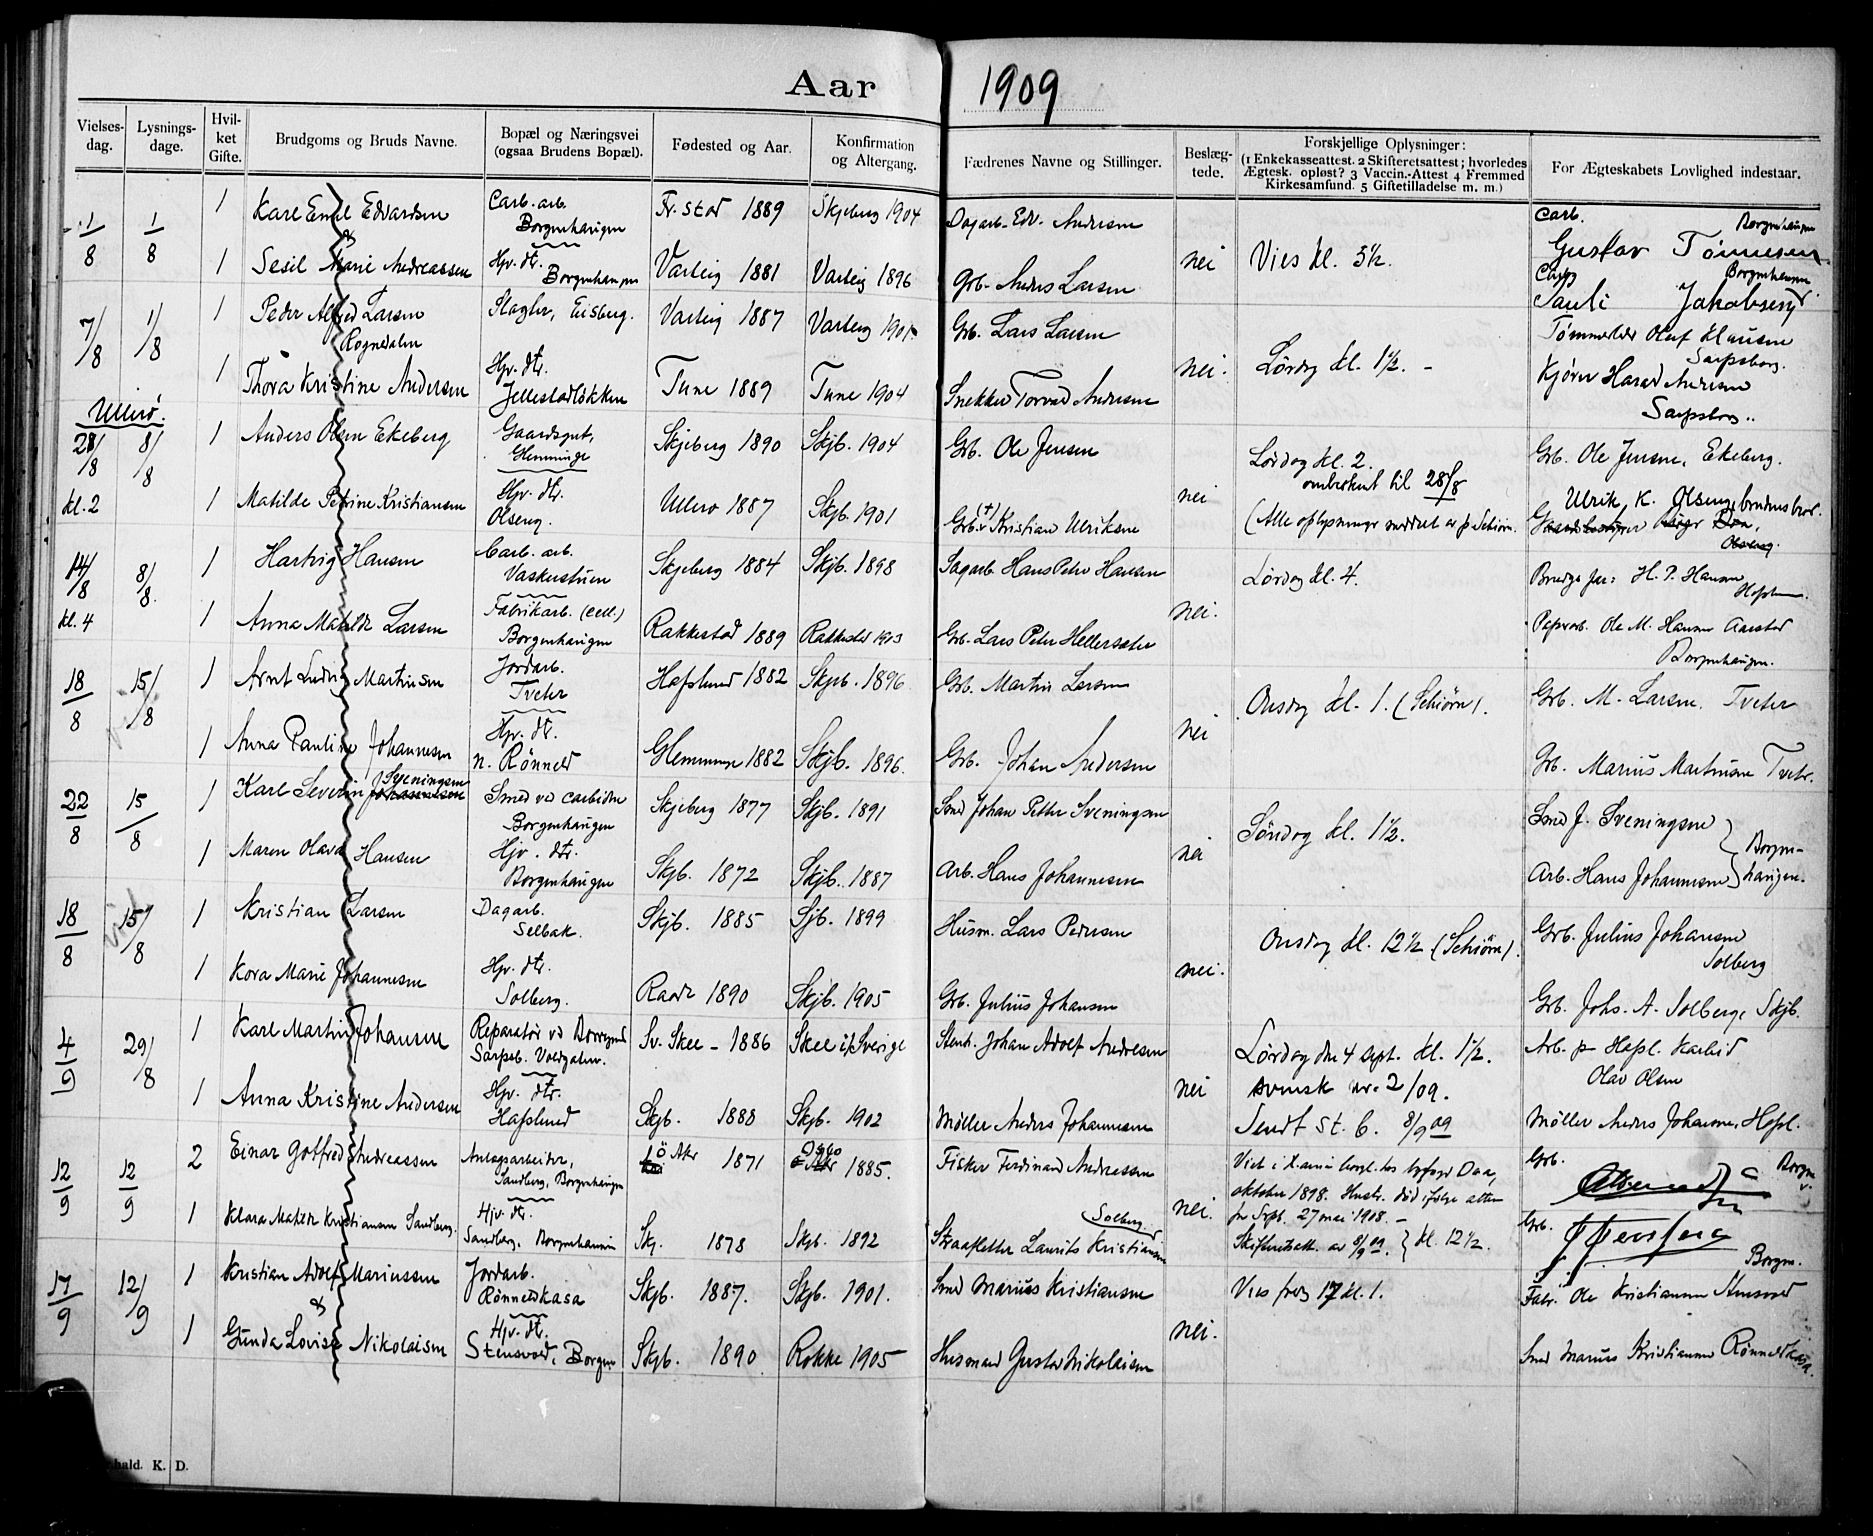 Aar 1909
Vielses-dag. Lysnings-dage. Hvil-ket Gifte. Brudgoms og Bruds Navne. Bopæl og Næringsvei (ogsaa Brudens Bopæl). Fødested og Aar. Konfirmation og Altergang. Fædrenes Navne og Stillinger. Beslæg-tede. Forskjellige Oplysninger: (1 Enkekasseattest. 2 Skifteretsattest; hvorledes Ægtesk. opløst? 3 Vaccin.-Attest 4 Fremmed Kirkesamfund. 5 Giftetilladelse m. m.) For Ægteskabets Lovlighed indestaar.
1/8 1/8 1 Karl Emil Edvardsen Carb. arb. Borgenhaugen Fr.stad 1889 Skjeberg 1904 Dagarb. Edv. Andersen Carb. Borgenhaugen Gustav Tønnesen
1 Sesil Marie Andreassen Hjv. dtr. Borgenhaugen Varteig 1881 Varteig 1896 Grb. Anders Larsen nei Vies kl. 5½. Borgenhaugen Pauli Jakobsen
7/8 1/8 1 Peder Alfred Larsen Rognedalen Slagter, Eisberg. Varteig 1887 Varteig 1901 Grb. Lars Larsen Tømmerm. Olaf Hansen Sarpsborg.
1 Thora Kristine Andersen Hjv. dtr. Jellestadløkken Tune 1889 Tune 1904 Snekker Torvald Andersen nei. Lørdag kl. 1½. Kjører Harald Andersen Sarpsborg.
Ullerø.
28/8 8/8 1 Anders Olsen Ekeberg Gaardsgut, Hemminge Skjeberg 1890 Skjb. 1904 Grb. Ole Jensen Lørdag kl. 2. omberkent til 28/8 Grb. Ole Jensen, Ekeberg.
kl. 2 1 Matilde Petrine Kristiansen Hjv. dtr. Olseng. Ullerø 1887 Skjb. 1901 Grb. (+) Kristian Ulriksen nei (Alle oplysninger meddelt av p. Schiørn. Ulrik K. Olseng, brudens bror.
14/8 8/8. 1 Hartvig Hansen Carb. arb. Vaskerstuen Skjeberg 1884 Skjb. 1898 Sagarb. Hans Peter Hansen Lørdag kl. 4. Brudgs far: H. P. Hansen Hafslund.
kl. 4 1 Anna Matilde Larsen Fabrikarb. (cell.) Borgenhaugen Rakkestad 1889 Rakkestad 1903 Grb. Lars Peter Hellersæter nei. Papirarb. Ole M. Hansen Aarstad Borgenhaugen.
18/8 15/8 1 Arnt Ludvig Martinsen Jordarb. Tveter Hafslund 1882 Skjeb. 1896 Grb. Martin Larsen Onsdag kl. 1. (Schiørn). Grb. M. Larsen, Tveter
1 Anna Pauline Johannesen Hjv. dtr. n. Rønneld Glemminge 1882 Skjb. 1896. Grb. Johan Andersen nei Grb. Marius Martinsen Tveter.
22/8 15/8 1 Karl Severin Johannesen Sveningsen Smed ved carbiden Borgenhaugen Skjeberg 1877 Skjb. 1891 Smed Johan Petter Sveningsen Søndag kl. 1½. Smed J. Sveningsen Borgen-
1 Maren Olava Hansen Hjv. dtr. Borgenhaugen Skjb. 1872 Skjb. 1887 Arb. Hans Johannesen nei Arb. Hans Johannesen haugen.
18/8 15/8 1 Kristian Larsen Dagarb. Selbak. Skjb. 1885 Sjb. 1899 Husm. Lars Pedersen Onsdag kl. 12½ (Schiørn). Grb. Julius Johansen Solberg
1 Kora Marie Johannesen Hjv. dtr. Solberg. Raade 1890 Skjb. 1905 Grb. Julius Johansen nei. Grb. Johs. A. Solberg, Skjb.
4/9 29/8 1 Karl Martin Johansen Reparatør ved Borregaard Sarpsb. Sv. Skee - 1886 Skee i Sverige Stenh. Johan Adolf Andresen Lørdag den 4 sept. kl. 1½. Arb. p. Hafsl. Karbid Olav Olsen
1 Anna Kristine Andersen Hjv. dtr. Hafslund Skjb. 1880 Skjb. 1902 Møller Anders Johannesen nei svensk nr. 2/09. Sendt St. C. 8/9 09 Møller Anders Johannesen, Hafsl.
12/9 12/9 2 Einar Gotfred Andreassen Anlægsarbeider, Sandberg, Borgenhaugen Ø Aker 1871 Oslo 1885. Fisker Ferdinand Andreassen Viet i Kania borgl. hos byfoged Daa, oktober 1898. Hustr. død ifølge attest fr Sarpb. 27 mai 1908. Grb. Borgen
1 Klara Matilde Kristiansen Sandberg. Hjv. dtr. Sandberg, Borgenhaugen Skj. 1878 Skjb. 1892 Solberg. Laurits Kristiansen nei. Skifteretsatt. av 8/9 09. kl. 12½. Grb. Borgen.
17/9 12/9 1 Kristian Adolf Mariussen Jordarb. Rønneldkasa Skjb. 1887. Skjb. 1901. Smed Marius Kristiansen Vies fredg 17 kl. 1. Fabr. Ole Kristiansen Stensvod
1 Gunda Lovise Nikolaisen Hjv. dtr. Stensvod, Borgen Skjb. 1890 Rokke 1905 Husmand Gustav Nikolaisen nei. Smed Marius Kristiansen Rønneldkasa.
hald. K. D.